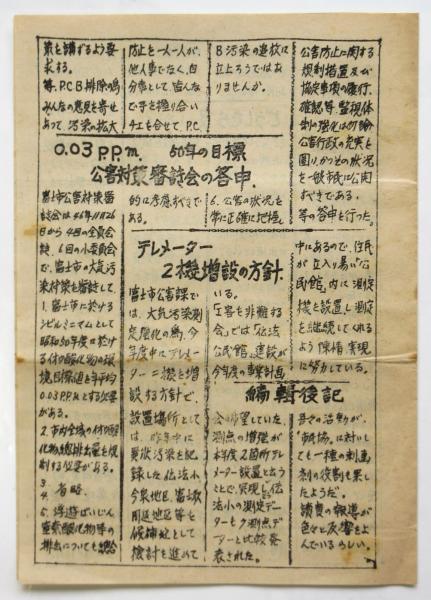 策を講ずるよう要
求する。
等、P.C.B排除の為
みんなの意見を寄せ
あって、汚染の拡大
防止を一人一人が、
他人事でなく、自
分事として、皆んな
で手を握り合い
チエを合せて、P.C.
B汚染の追放に
立上ろうではあ
りませんか。
公害防止に関する
規制措置及び
協定事項の履行、
確認等、監視体
制の強化は勿論
公害行政の充実と
図り、かつその状況
を一般市民に公開
すべきである。
等の答申を行った。
0.03P.P.m. 50年の目標
公害対策審議会の答申.
富士市公害対策審
議会は46年11月26
日から4回の全員会
議、6回の小委員会
で、富士市の大気汚
染対策を審議して、
1. 富士市に於ける
シビルミニマムとして
昭和50年度に於け
る硫黄酸化物の環
境目標値を年平均
0.03P.P.mとする必要
がある。
2. 市内全域の硫黄酸
化物総排出量を規
制する必要がある。
3.
4. 省略
5. 浮遊ばいじん
窒素酸化物等の
排出についても総合
的に考慮すべきで
ある。
6. 公害の状況を
常に正確に把握、
テレメーター
2機増設の方針.
富士市公害課で
は、大気汚染測
定強化の為、今
年度中にテレメータ
ー二機を増
設する方針で、
設置場所とし
ては、昨年中に
異状汚染を記
録した伝法小
今泉地区、富士駅
周辺地区等を
候補地として
検討を進めて
いる。
「工害を非難する
会」では「伝法
公民館」建設が
今年度の事業計画
中にあるので、住民
が立入り易い「公
民館」内に測定
機を設置し測定
を継続してくれる
よう陳情、実現
に努力している。
編輯後記
会が希望していた、
測点の増強が
本年度2箇所テレ
メーター設置と云う
ことで、実現し、伝
法小の測定デー
ターも他測点デ
ーターと比較発
表された。
吾々の活動が、
市、協に対し
ても一種の刺戟
剤の役割も果し
たようだ。
讀賣の報導が
色々と反響をよ
んでいるらしい。